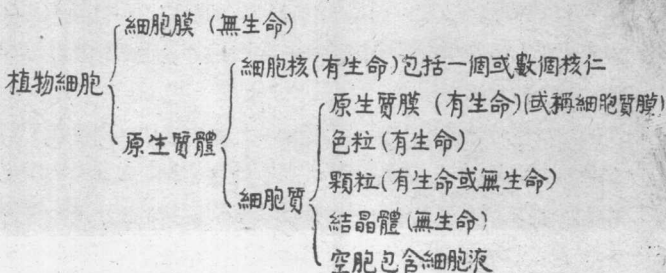 細胞膜(無生命)
植物細胞
細胞核(有生命)包括一個或數個核仁
原生質體
原生質膜(有生命)(或稱細胞質膜)
色粒(有生命)
顆粒(有生命或無生命)
細胞質
結晶體(無生命)
空胞包含細胞液